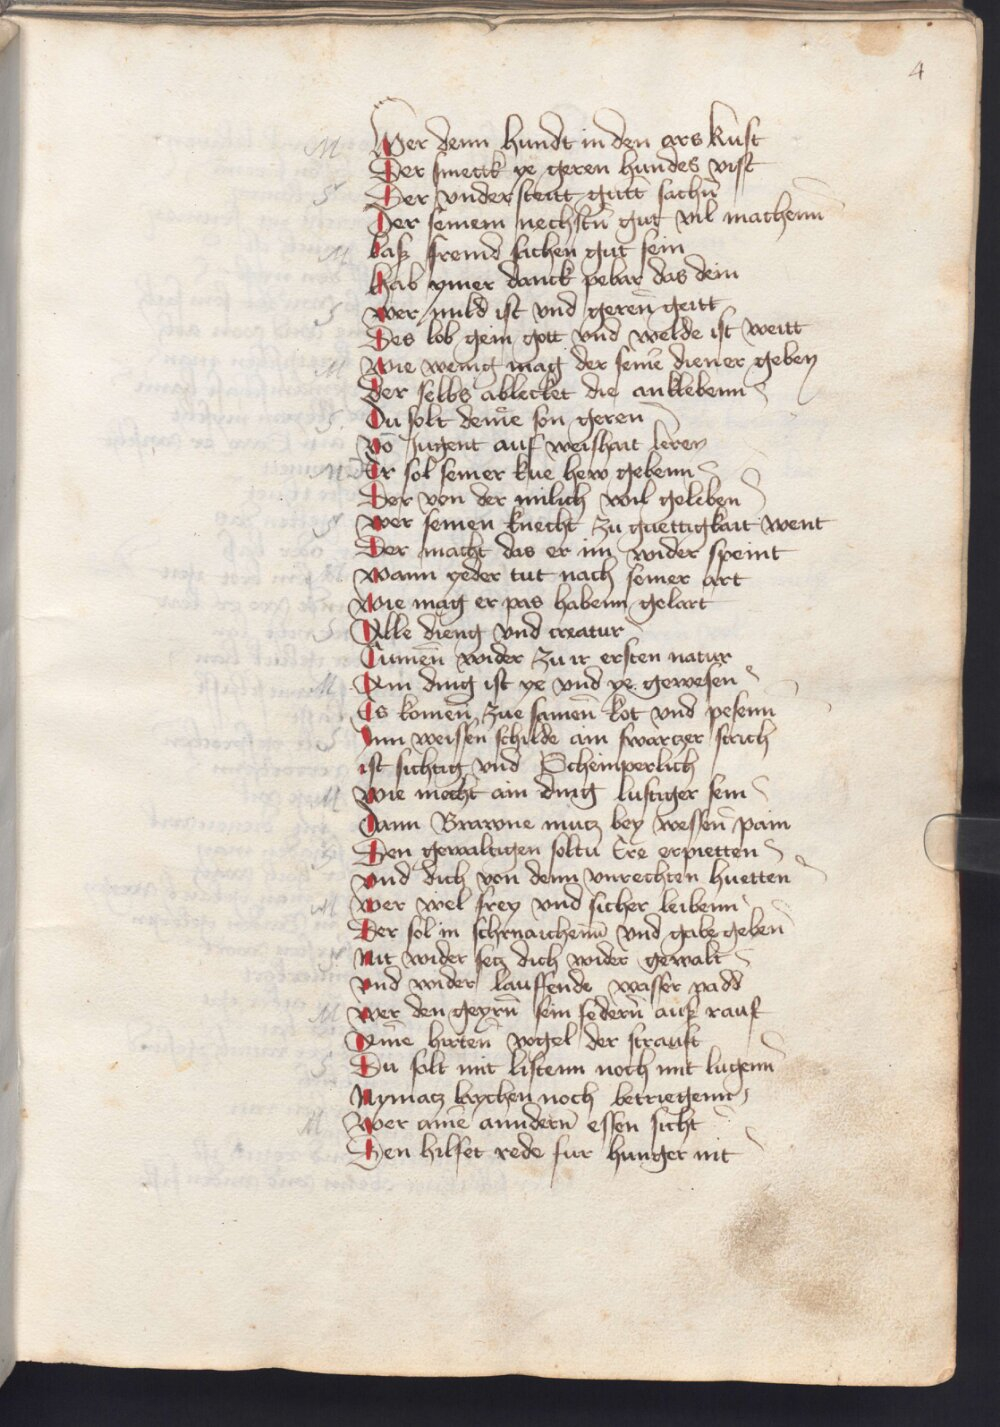 4
M Wer denn hundt in den ars kust
Der smeckt ye geren hundes vist
S Der vnderstentt gutt sachn̄
Der seinem nechstn̄ gut vil machenn
M laß fremd sachen gut sein
Hab ymer danck pebar das dein
S wer mild ist vnd geren geitt
Des lob gein gott vnd welde ist weitt
M Wie wenig mag der seinē diener geben
Der selbs ablecket die anklebenn
S Du solt deinē son geren
Vō Jugent auf weishait leren
M Er sol seiner kue hew gebenn
Der von der milich wil geleben
S wer seinen knecht zu guettigkait went
Der macht das er im wider speint
wann yeder tut nach seiner art
Wie mag er pas habenn gelart
S Alle dieng vnd creatur
Cumen̄ wider zu ir ersten natur
M Ain ding ist ye vnd ye gewesen
Es komen̄ zue samen̄ kot vnd pesenn
S Inn weissen schilde ain swarczer strich
ist sichtig vnd Schimperlich
M Wie mecht ain ding lustiger sein
Dann Brawne mutz bey weissen̄ pain
S Den gewaltigen soltu Ere erpietten
vnd dich von denn vnrechten huetten
M Wer wel frey vnd sicher leibenn
Der sol in schmaichenn̄ vnd gabe geben̄
S Nit wider secz dich wider gewalt
vnd wider lauffende wasser padd
M wer den geyrn̄ sein federn̄ auß rauft
Ainē hirten̄ vogel der strauft
S Du solt mit listenn noch mit lugenn
Nymacz laychen noch betriegenn
M Wer ainē anndern̄ essen sicht
Den hilfet rede fur hunger nit